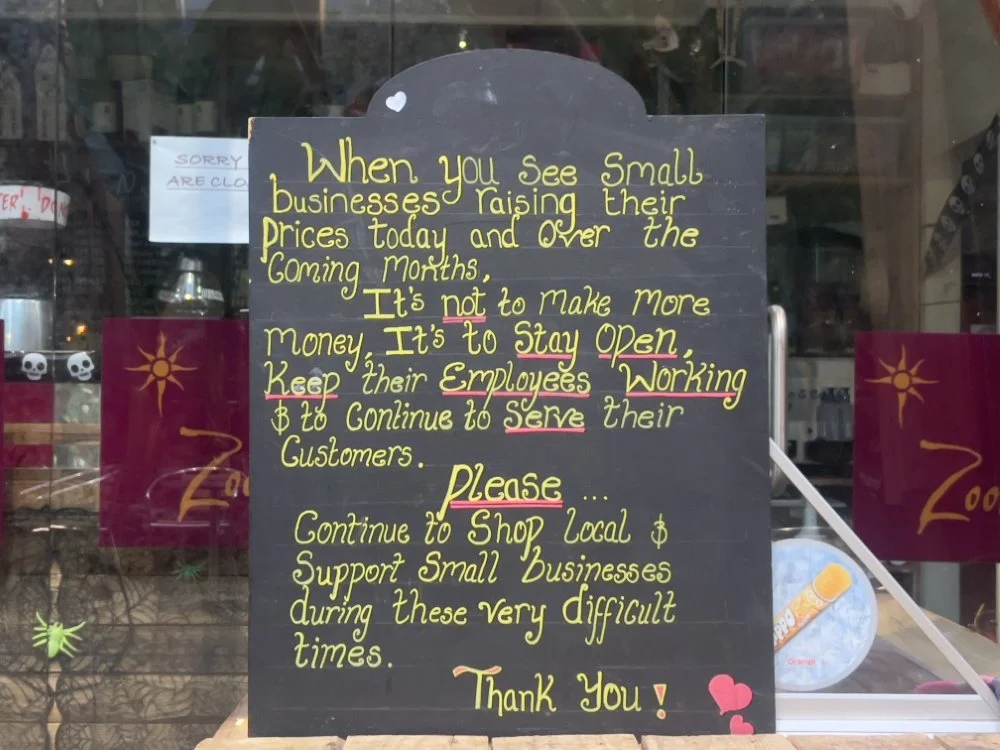 When you see Small
businesses raising their
Prices today and Over the
Coming Months,
It's not to Make More
Money, It's to Stay Open,
Keep their Employees Working
$ to Continue to Serve their
Customers.
Please ...
Continue to Shop Local $
Support Small businesses
during these very difficult
times.
Thank You!
SORRY
ARE CLO
Orange